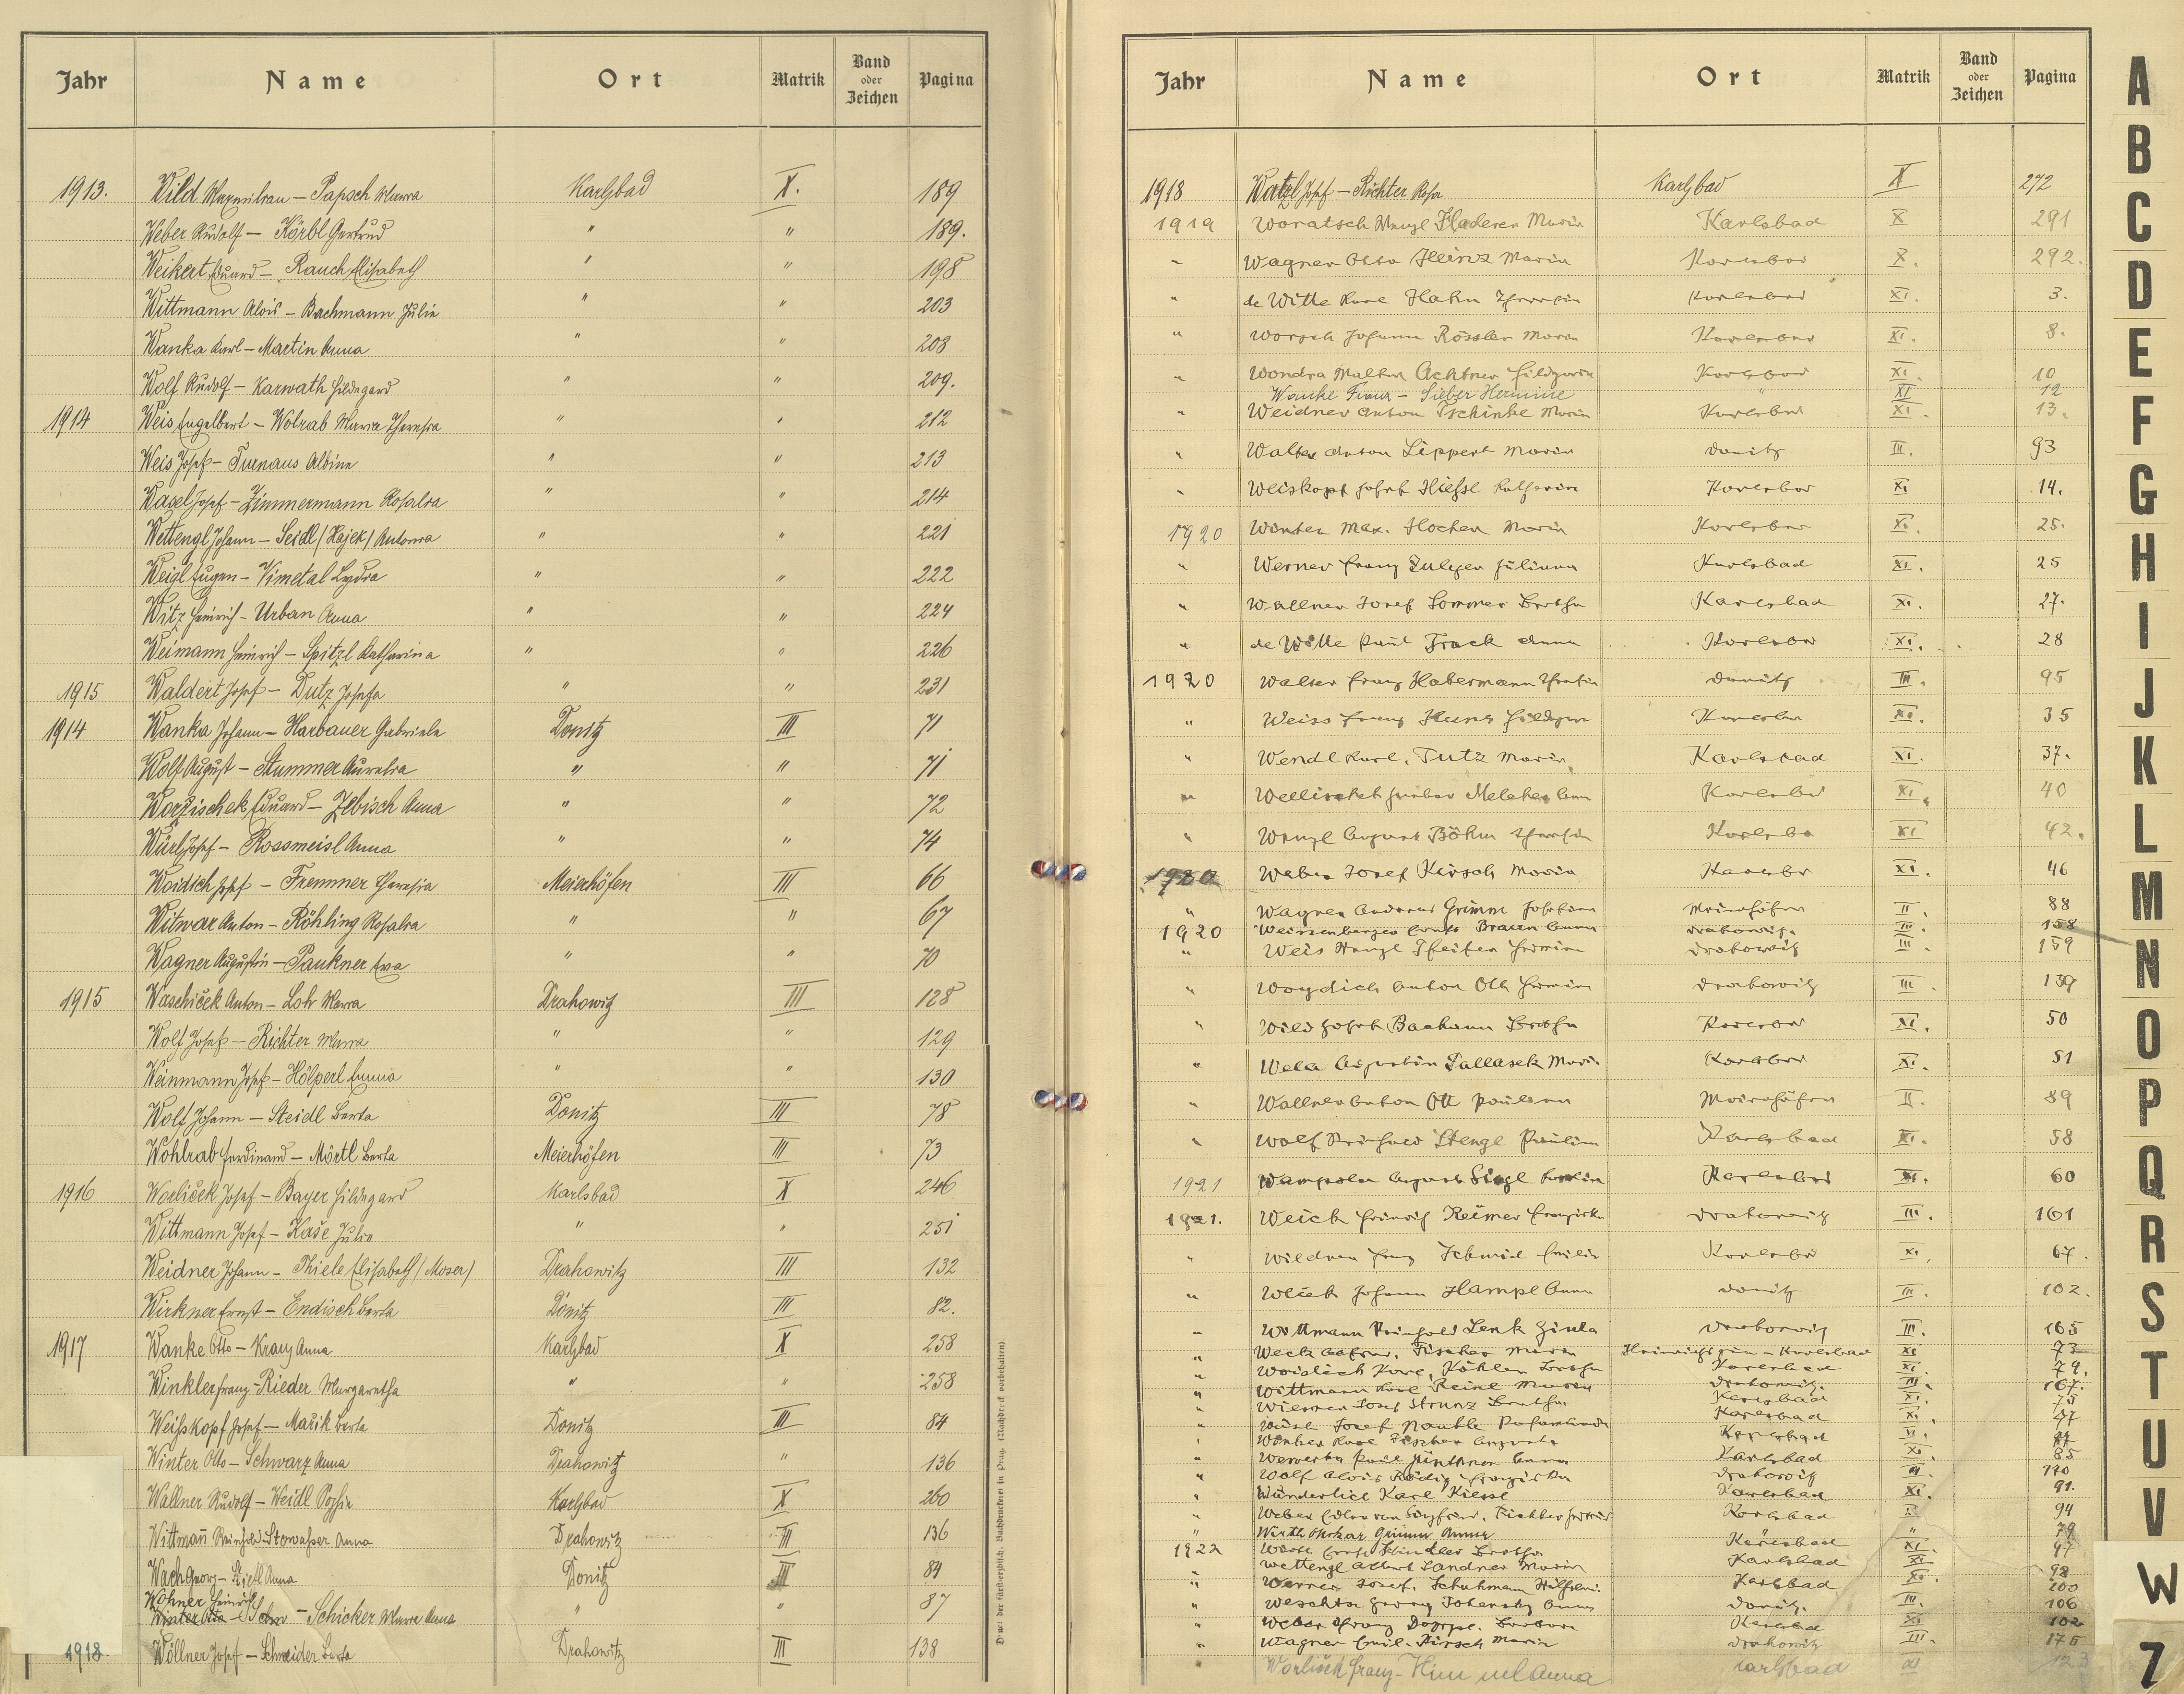 Jahr Name Ort Matrik Band oder Zeichen Pagina
1913. Wild Maximilian – Papsch Maria Karlsbad X. 189
Weber Rudolf – Körbl Gertrud " " 189.
Weikert Eduard – Rauch Elisabeth " " 198
Wittmann Alois – Bachmann Julie " " 203
Wanka Karl – Martin Anna " " 208
Wolf Rudolf – Karwath Hildegard " " 209.
1914 Weis Engelbert – Wolrab Maria Theresia " " 212
Weis Josef – Turnaus Albine " " 213
Wasel Josef – Zimmermann Rosalia " " 214
Wettengl Johann – Seidl /Hajek/ Antonia " " 221
Weigl Eugen – Vimetal Lydia " " 222
Witz Heinrich – Urban Anna " " 224
Weimann Heinrich – Spitzl Katharina " " 226
1915 Waldert Josef – Dutz Josefa " " 231
1914 Wanka Johann – Harbauer Gabriele Donitz III 71
Wolf August – Stummer Aurelia " " 71
Worzischek Eduard – Zebisch Anna " " 72
Würl Josef – Rossmeisl Anna " " 74
Woidich Josef – Fremmer Theresia Meierhöfen III 66
Witwar Anton – Röhling Rosalia " " 67
Wagner Augustin – Paukner Eva " " 70
1915 Waschiček Anton – Lohr Maria Drahowitz III 128
Wolf Josef – Richter Maria " " 129
Weinmann Josef – Hölperl Emma " " 130
Wolf Johann – Steidl Berta Donitz III 78
Wohlrab Ferdinand – Mörtl Berta Meierhöfen III 73
1916 Worliček Josef – Bayer Hildegard Karlsbad X 246
Wittmann Josef – Kaše Julie " " 251
Weidner Johann – Thiele Elisabeth /Moser/ Drahowitz III 132
Wirkner Ernst – Endisch Berta Donitz III 82.
1917 Wanke Otto – Kranz Anna Karlsbad X 258
Winkler Franz – Rieder Margaretha " " 258
Weißkopf Josef – Mařik Berta Donitz III 84
Winter Otto – Schwarz Anna Drahowitz " 136
Wallner Rudolf – Weidl Sophie Karlsbad X 260
Wittmañ Reinhold – Stowasser Anna Drahowitz III 136
Wach Georg – Anna Donitz III 84
Wohner Heinrich
– Schicker Maria Anna " " 87
1918. Wöllner Josef – Schneider Berta Drahowitz III 138
Druck der fürst-erzbisch. Buchdruckerei in Prag. (Nachdruck vorbehalten).
Jahr Name Ort Matrik Band oder Zeichen Pagina
1918 Watzl Josef – Richter Rosa Karlsbad X 272
1919 Woratsch Wenzl Haderer Maria Karlsbad X 291
" Wagner Otto Heinz Maria Karlsbad X. 292.
" de Witte Karl Hahn Theresia Karlsbad XI. 3.
" Worsch Johann Rössler Maria Karlsbad XI. 8.
" Wondra Walter Achtner Hildegard Karlsbad XI. 10
Wanke Franz – Sieber Hermine " XI 12
" Weidner Anton Tschinke Maria Karlsbad XI. 13.
" Walter Anton Lippert Maria Donitz III. 93
" Weiskopf Josef Hiessl Katharina Karlsbad XI. 14.
1920 Winter Max. Hocher Maria Karlsbad XI. 25.
" Werner Franz Zulger Juliana Karlsbad XI. 25
" Wallner Josef Sommer Bertha Karlsbad XI. 27.
" de Witte Paul Frack Anna Karlsbad XI. 28
1920 Walter Franz Habermann Theresia Donitz III. 95
" Weiss Franz Kunz Hildegard Karlsbad XI. 35
" Wendl Karl. Tutz Maria Karlsbad XI. 37.
" Karlsbad XI. 40
" Wenzl August Böhm Theresia Karlsbad XI 42.
1920 Weber Josef Kirsch Maria Karlsbad XI. 46
" Wagner Andreas Grimm Meierhöfen II. 88
1920 Weissenberger Ernst Braun Anna Drahowitz. III. 158
" Weis Wenzl Pfeifer Hermine Drahowitz III. 159
" Woydich Anton Ott Hermine Drahowitz III. 139
" Wild Josef Bachann Bertha Karlsbad XI. 50
" Wela Augustin Pallasek Maria Karlsbad XI. 51
" Wallner Anton Ott Paulina Meierhöfen II. 89
" Wolf Reinhold Stengl Paulina Karlsbad XI. 58
1921 Wampola August Siegl Karlsbad XI. 60
1921. Weick Heinrich Reimer Franziska Drahowitz III. 161
" Wildner Franz Schmid Emilie Karlsbad XI. 67.
" Wlcek Johann Hampl Anna Donitz III. 102.
" Wittmann Reinhold Lenk Gisela Drahowitz III. 165
" Fischer Maria Karlsbad XI 73
" Woidich Karl, Köhler Bertha Karlsbad XI. 74.
" Wittmann Karl Reinl Maria Drahowitz. III. 167.
" Josef Strunz Bertha Karlsbad XI. 75
" Josef Karlsbad XI. 77
Winter Karl Fischer Augusta Karlsbad
" Karlsbad XI. 85
" Wolf Alois Rödig Franziska Drahowitz 170
" Wünderlich Karl Kiessl Karlsbad XI. 91.
" Weber Karlsbad 94
" Wirth Ottokar Grimm Anna " 79
1922 Bertha Karlsbad XI. 97
" Wettengl Albert Landner Maria Karlsbad XI. 98
" Werner Josef. Schuhmann Karlsbad XI. 100
" Weschta Georg Anna Donitz. III. 106
" Weber Franz Barbara Karlsbad XI. 102
" Wagner Emil. Hirsch Maria Drahowitz III. 175
Worliček Franz – Anna Karlsbad XI 123
A
B
C
D
E
F
G
H
I
J
K
L
M
N
O
P
Q
R
S
T
U
V
W
Z